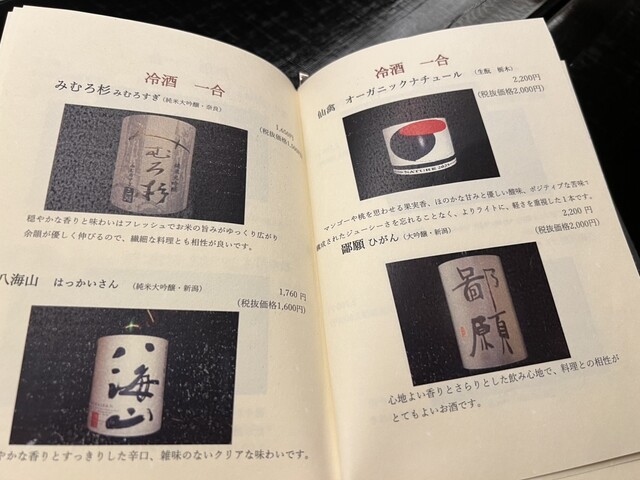 冷酒 一合
みむろ杉 みむろすぎ (純米大吟醸・奈良)
1,650円
(税抜価格1,500円)
みむろ杉
穏やかな香りと味わいはフレッシュでお米の旨みがゆっくり広がり
余韻が優しく伸びるので、繊細な料理とも相性が良いです。
八海山 はっかいさん (純米大吟醸・新潟)
1,760 円
(税抜価格1,600円)
八海山
やかな香りとすっきりした辛口、雑味のないクリアな味わいです。
冷酒 一合
仙禽 オーガニックナチュール (生酛 栃木)
2,200円
(税抜価格2,000円)
NATURE
マンゴーや桃を思わせる果実香、ほのかな甘みと優しい酸味、ポジティブな苦味で
構成されたジューシーさを忘れることなく、よりライトに、軽さを重視した1本です。
鄙願 ひがん (大吟醸・新潟)
2,200 円
(税抜価格2,000円)
鄙願
心地よい香りとさらりとした飲み心地で、料理との相性が
とてもよいお酒です。